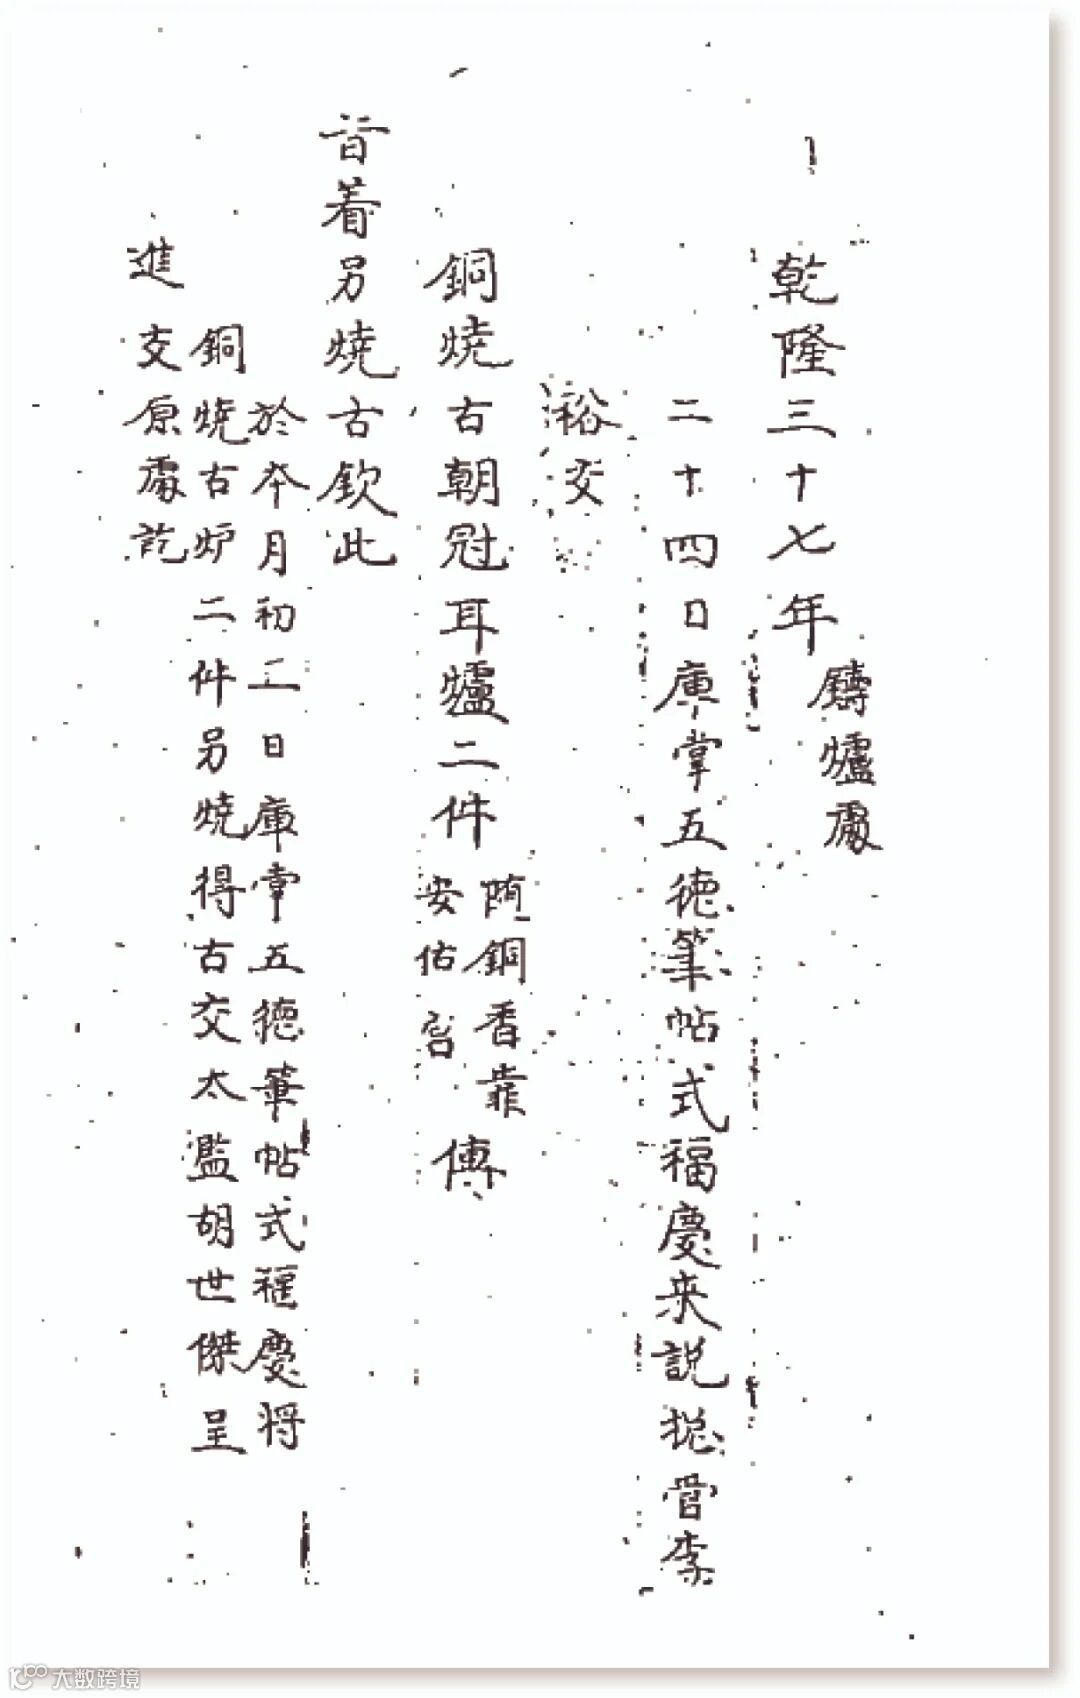 乾隆三十七年
鑄爐處
二十四日庫掌五德筆帖式福慶来說摠管李
裕交
銅燒古朝冠耳爐二件
随銅香靠
安佑宮
傳
旨着另燒古欽此
於本月初二日庫掌五德筆帖式福慶將
銅燒古炉二件另燒得古交太濫胡世傑呈
進
交原處訖
大数跨境